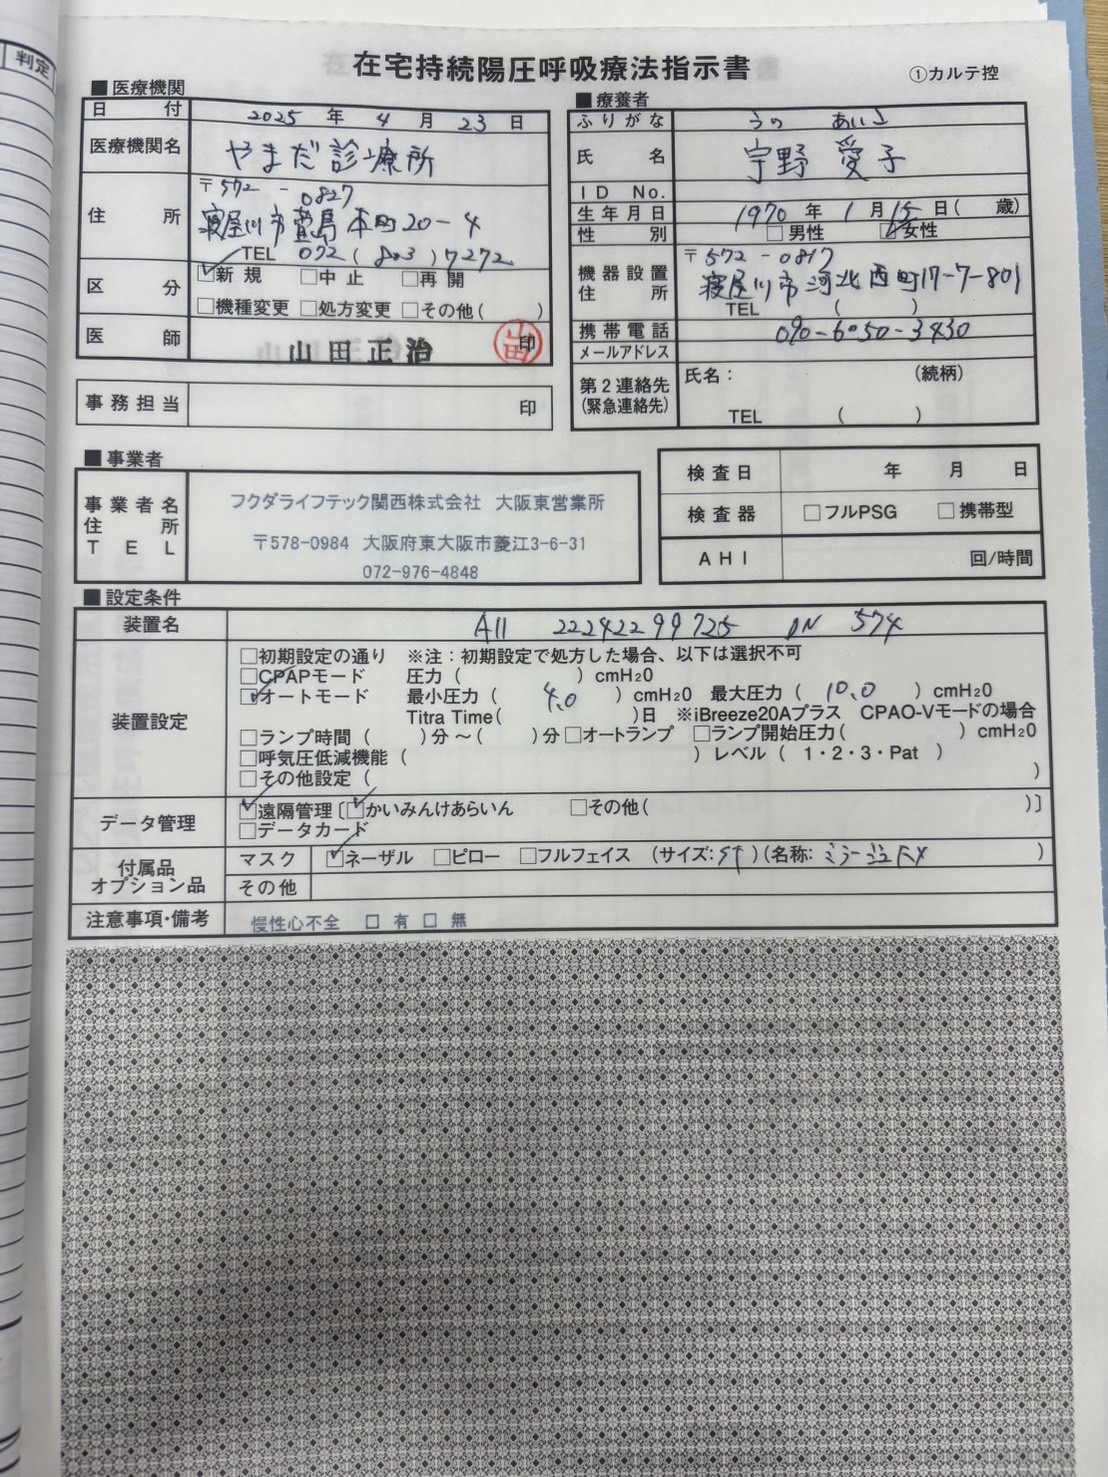 判定
在宅持続陽圧呼吸療法指示書
①カルテ控
■医療機関
日付 2025 年 4 月 23 日
医療機関名 やまだ診療所
住所 〒572-0827
寝屋川市萱島本町20-4
TEL 072 (803) 7272
区分 ☑新規 □中止 □再開
□機種変更 □処方変更 □その他( )
医師 山田正治 印
事務担当 印
■療養者
ふりがな うの あいこ
氏名 宇野 愛子
ID No.
生年月日 1970 年 1 月 15 日( 歳)
性別 □男性 ☑女性
機器設置住所 〒572-0817
寝屋川市河北西町17-7-801
TEL ( )
携帯電話 090-6050-3430
メールアドレス
第2連絡先 (緊急連絡先) 氏名: (続柄)
TEL ( )
■事業者
事業者名 住所 TEL
フクダライフテック関西株式会社 大阪東営業所
〒578-0984 大阪府東大阪市菱江3-6-31
072-976-4848
検査日 年 月 日
検査器 □フルPSG □携帯型
AHI 回/時間
■設定条件
装置名 A11 22242299725 574
装置設定
□初期設定の通り ※注:初期設定で処方した場合、以下は選択不可
□CPAPモード 圧力 ( ) cmH20
☑オートモード 最小圧力 ( 4.0 ) cmH20 最大圧力 ( 10.0 ) cmH20
Titra Time( )日 ※iBreeze20Aプラス CPAO-Vモードの場合
□ランプ時間 ( )分~( )分 □オートランプ □ランプ開始圧力( ) cmH20
□呼気圧低減機能 ( ) レベル ( 1・2・3・Pat )
□その他設定 ( )
データ管理
☑遠隔管理〔☑かいみんけあらいん □その他( )〕
□データカード
付属品 オプション品
マスク ☑ネーザル □ピロー □フルフェイス (サイズ: ) (名称: )
その他
注意事項・備考 慢性心不全 □ 有 □ 無